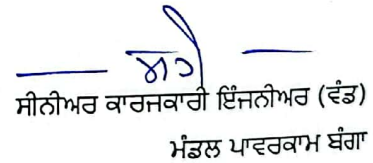 ਸੀਨੀਅਰ ਕਾਰਜਕਾਰੀ ਇੰਜਨੀਅਰ (ਵੰਡ)
ਮੰਡਲ ਪਾਵਰਕਾਮ ਬੰਗਾ